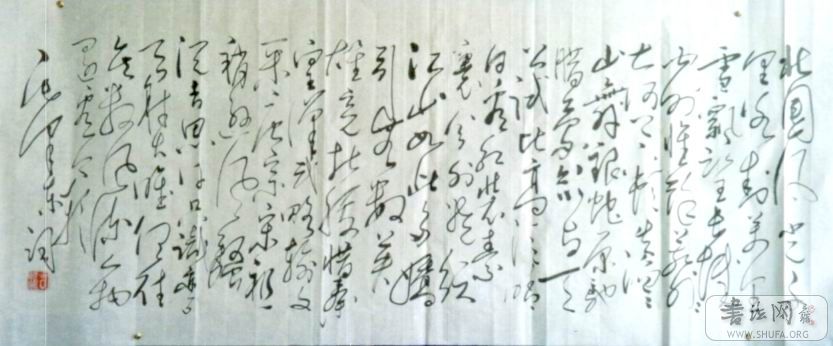 北国风光千
里冰封万里
雪飘望长城
内外惟余莽莽
大河上下顿失滔滔
山舞银蛇原驰
腊象欲与天
公试比高须晴
日看红装素
裹分外妖娆
江山如此多娇
引无数英
雄竞折腰惜秦
皇汉武略输文
采唐宗宋祖
稍逊风骚
成吉思汗只识弯弓
射大雕俱往
矣数风流人物
还看今朝
毛泽东词
书法网
WWW.SHUFA.ORG